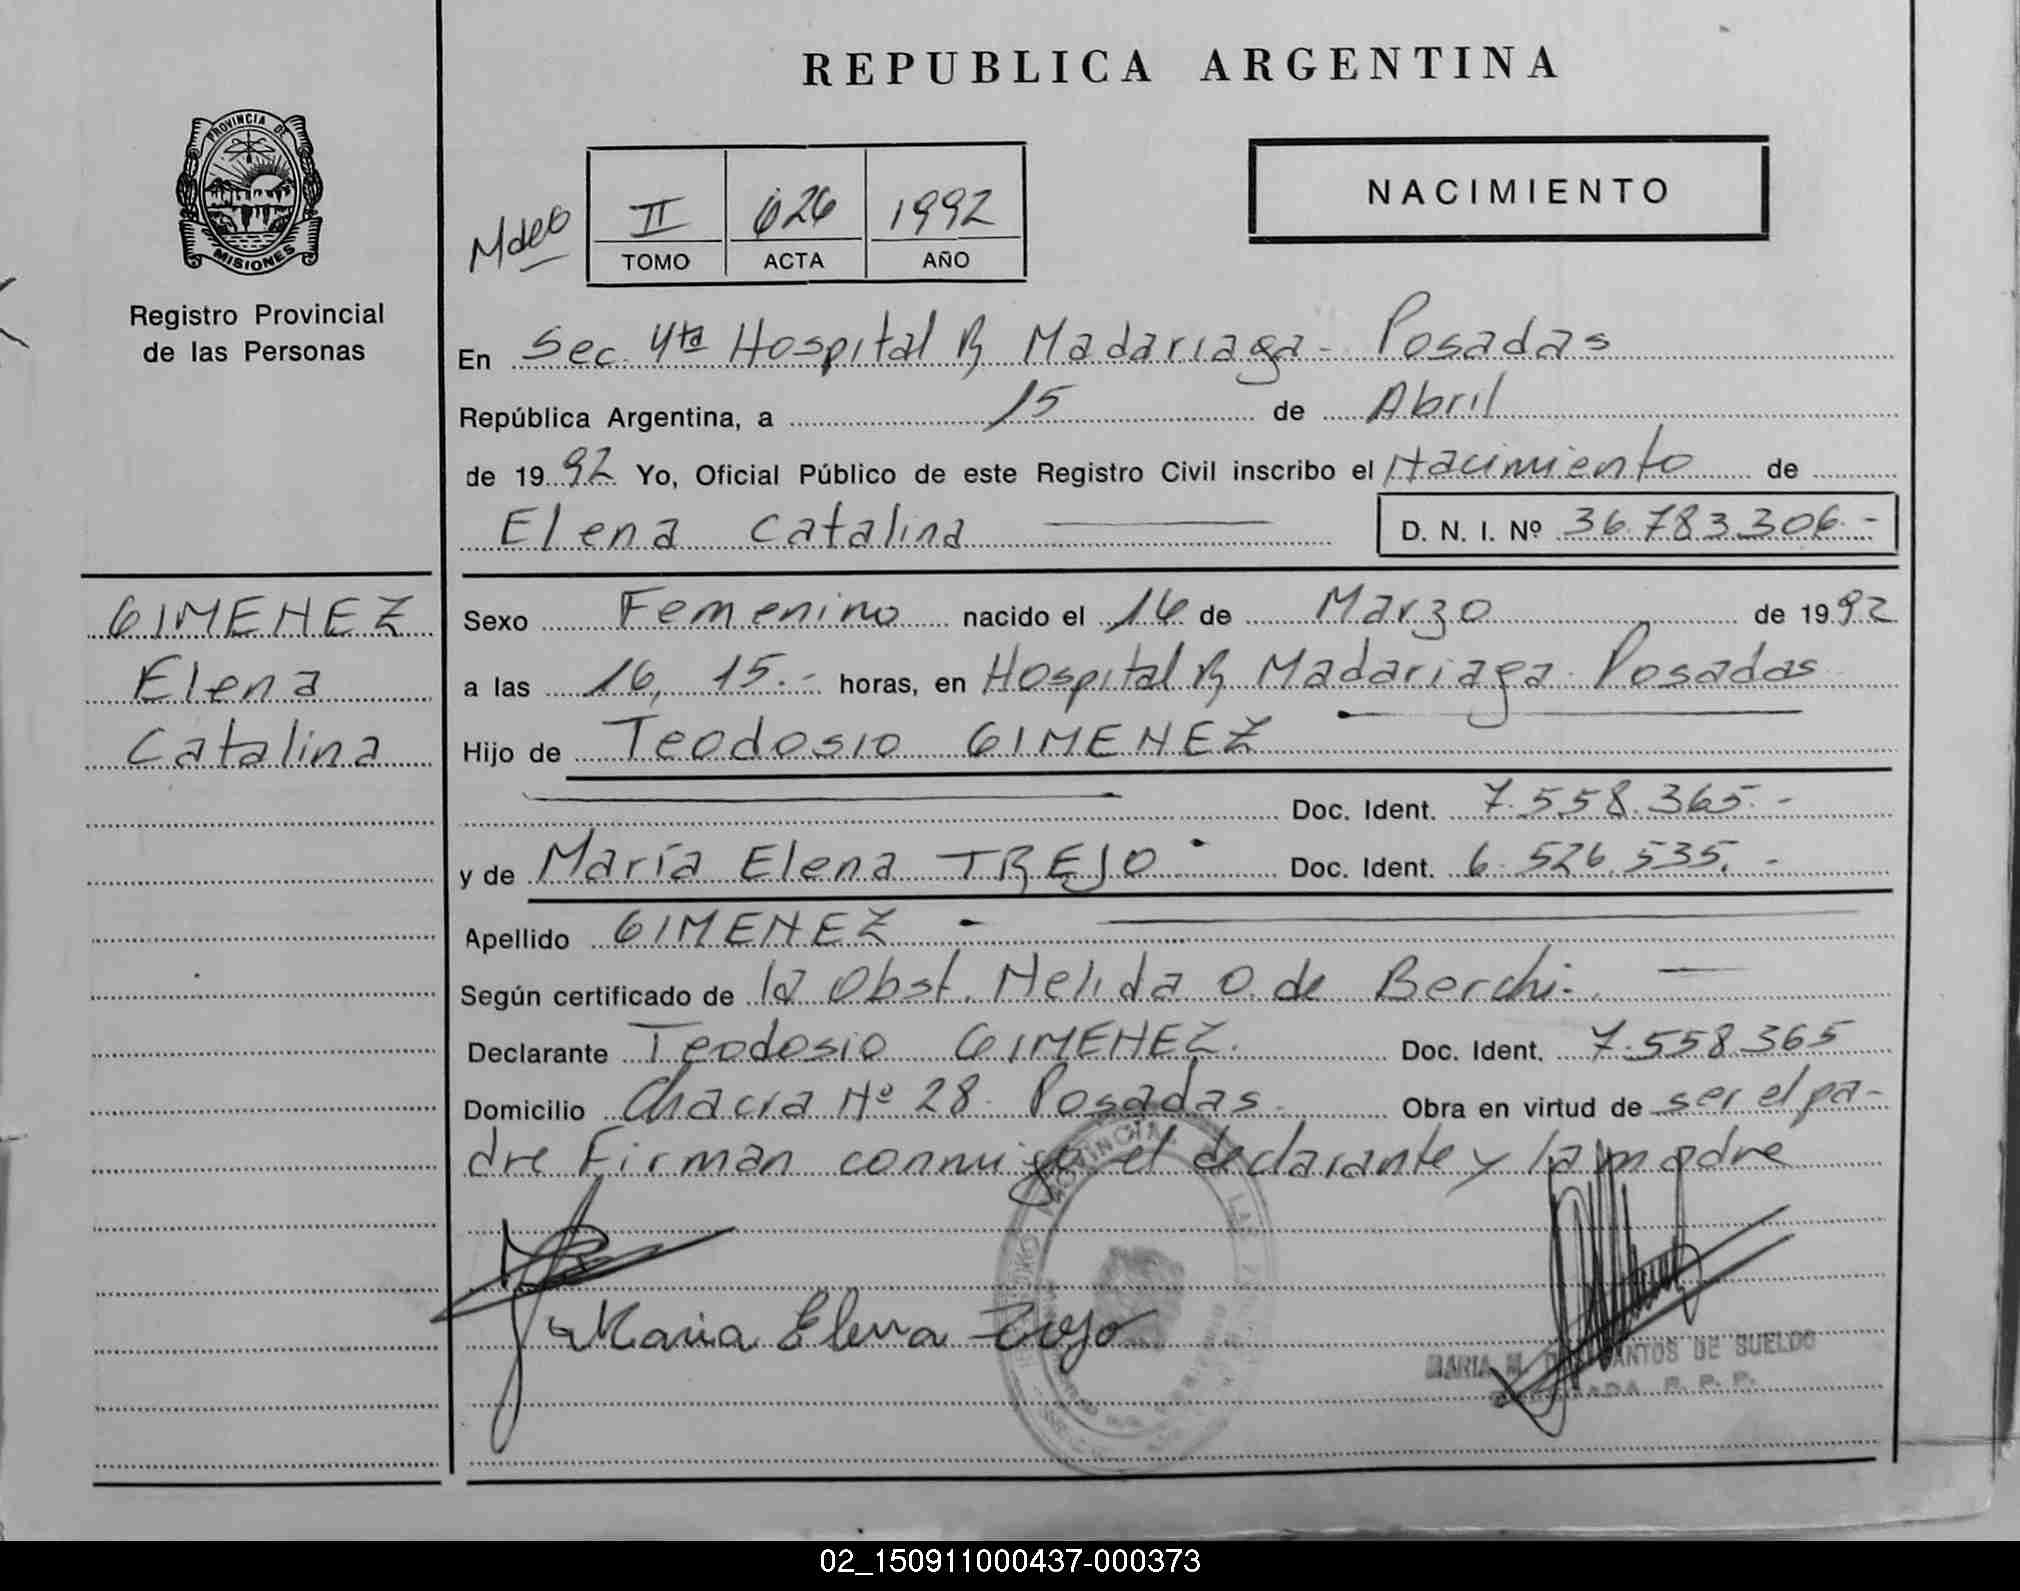 REPUBLICA ARGENTINA
PROVINCIA DE
MISIONES
Registro Provincial
de las Personas
II 626 1992
TOMO ACTA AÑO
NACIMIENTO
En Sec. 4ta Hospital R Madariaga - Posadas
República Argentina, a 15 de Abril
de 1992 Yo, Oficial Público de este Registro Civil inscribo el Nacimiento de
Elena Catalina D. N. I. Nº 36.783.306.-
GIMENEZ
Elena
Catalina
Sexo Femenino nacido el 16 de Marzo de 1992
a las 16, 15.- horas, en Hospital R Madariaga Posadas
Hijo de Teodosio GIMENEZ
Doc. Ident. 7.558.365.-
y de María Elena TREJO Doc. Ident. 6.526.535.-
Apellido GIMENEZ
Según certificado de la Obst. Nelida O. de Berchi.
Declarante Teodosio GIMENEZ. Doc. Ident. 7.558.365
Domicilio Chacra Nº 28 Posadas Obra en virtud de ser el pa-
dre Firman conmigo el declarante y la madre
Maria Elena Trejo
MARIA M. SANTOS DE SUELDO
02_150911000437-000373